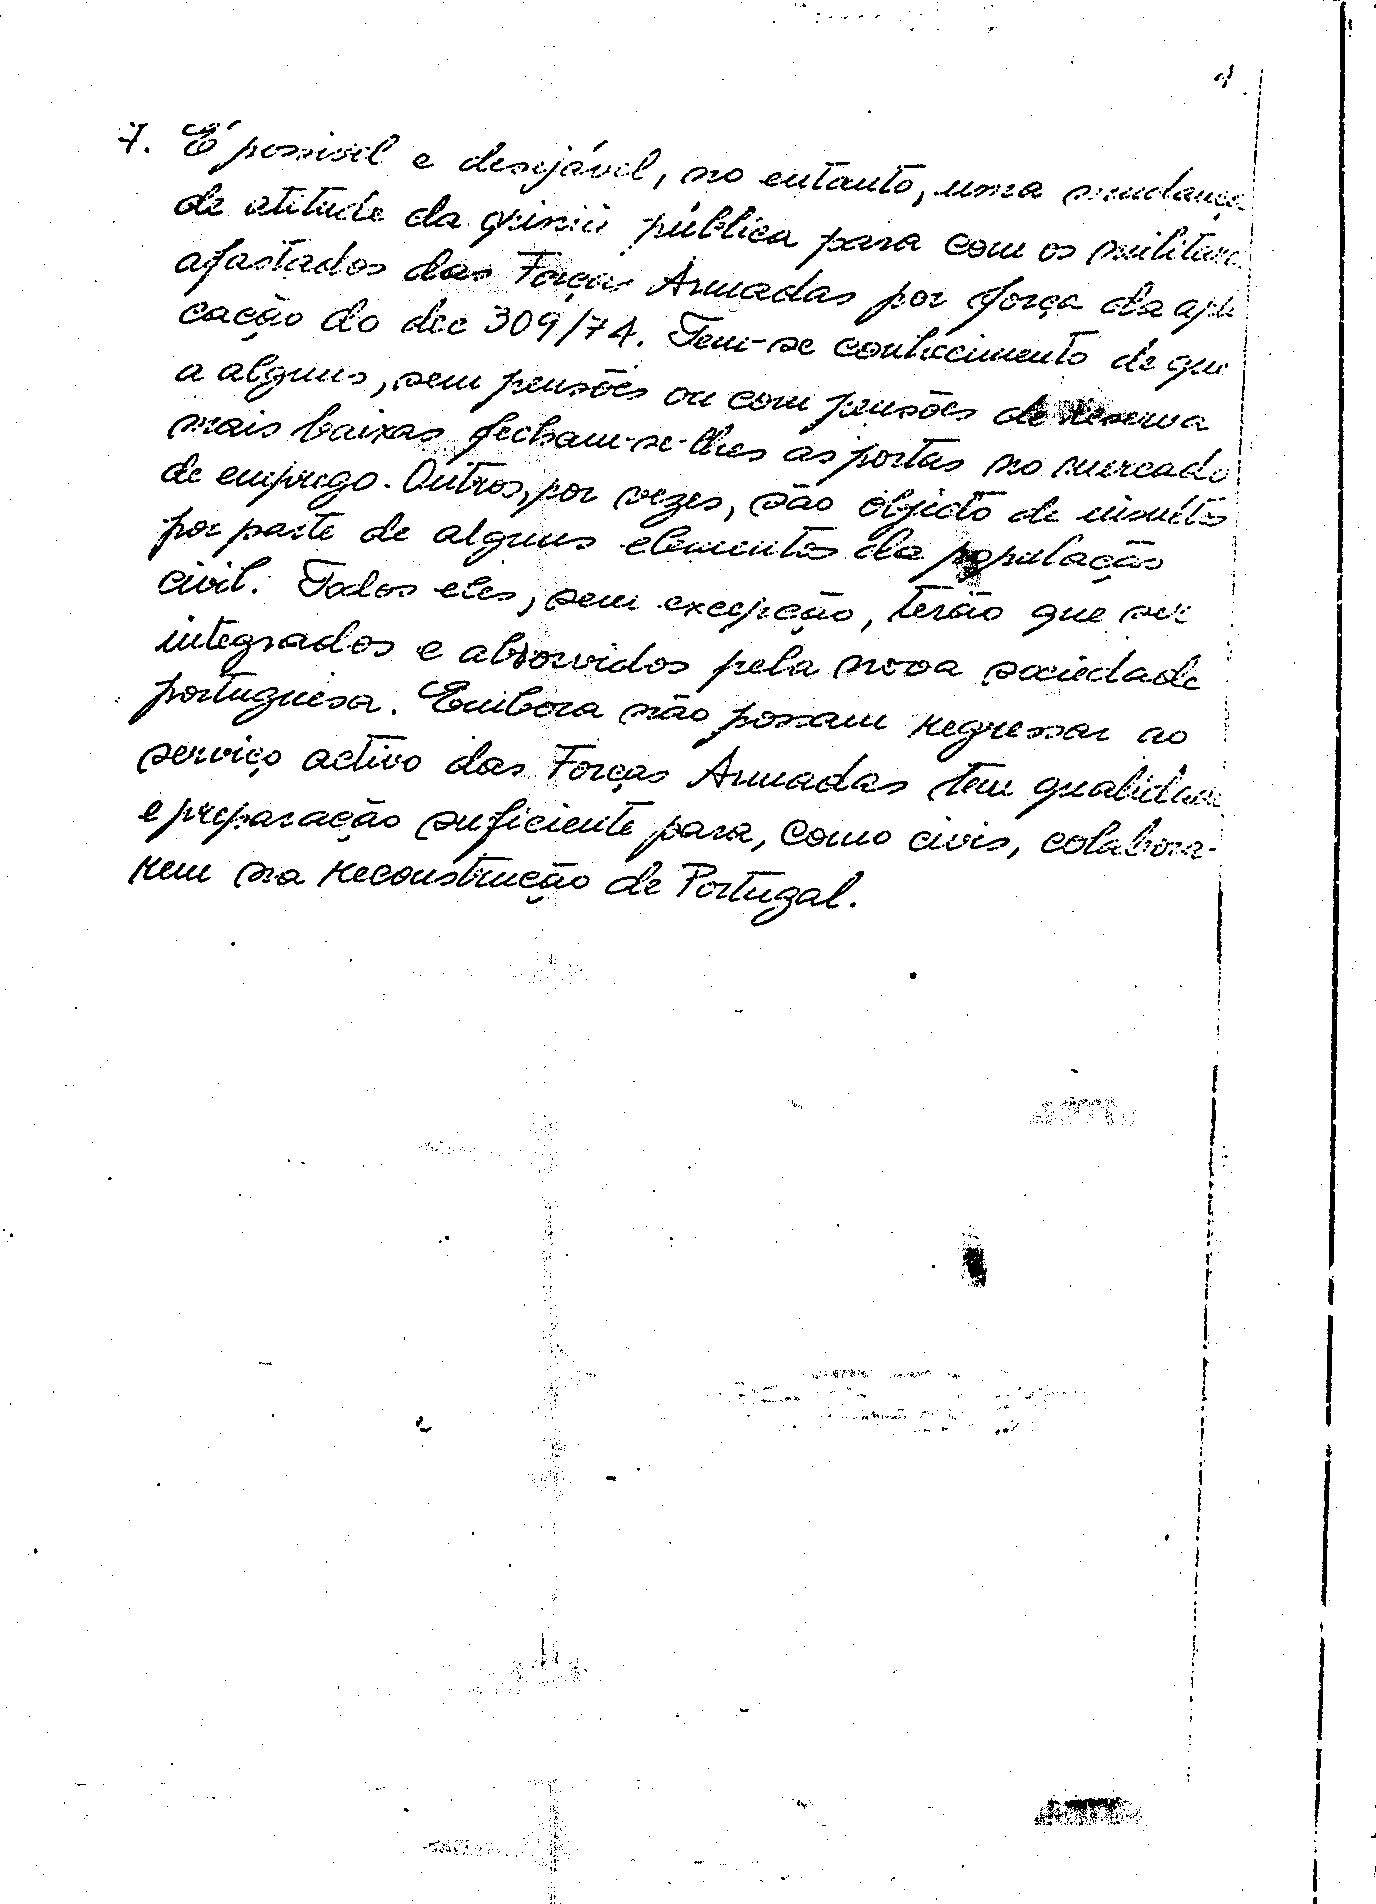 7. É possivel e desejável, no entanto, uma mudança
de atitude da opinião pública para com os militares
afastados das Forças Armadas por força da apli
cação do dec 309/74. Tem-se conhecimento de que
a alguns, sem pensões ou com pensões de reserva
mais baixas fecham-se-lhes as portas no mercado
de emprego. Outros, por vezes, são objecto de insultos
por parte de alguns elementos da população
civil. Todos eles, sem excepção, terão que ser
integrados e absorvidos pela nova sociedade
portuguesa. Embora não possam regressar ao
serviço activo das Forças Armadas tem qualidades
e preparação suficiente para, como civis, colabora-
rem na reconstrução de Portugal.